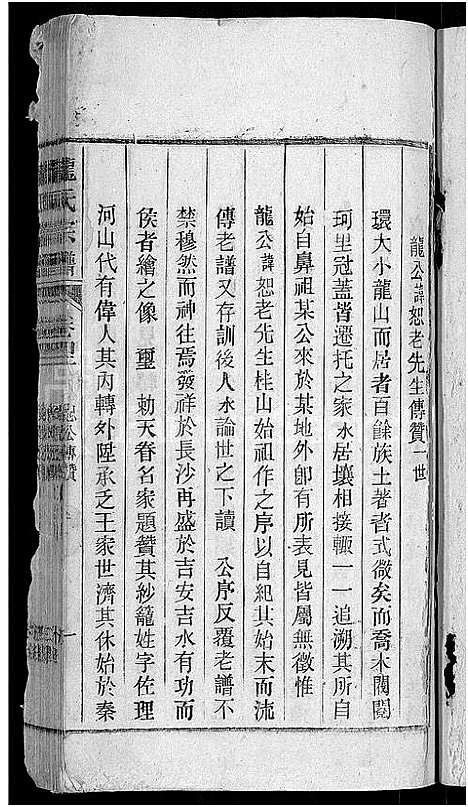 龍公諱恕老先生傳贊一世
環大小龍山而居者百餘族土著者式微矣而喬木閥閱
珂里冠蓋皆遷托之家水居壤相接輙一一追溯其所自
始自鼻祖某公來於某地外卽有所表見皆屬無徵惟
龍公諱恕老先生桂山始祖作之序以自紀其始末而流
傳老譜又存訓後人永論世之下讀　公序反覆老譜不
禁穆然而神往焉發祥於長沙再盛於吉安吉水有功而
侯者繪之像　璽　勅天眷名家題贊其紗籠姓字佐理
河山代有偉人其內轉外陞承乏王家世濟其休始於秦
龍氏宗譜
恕公傳贊
一